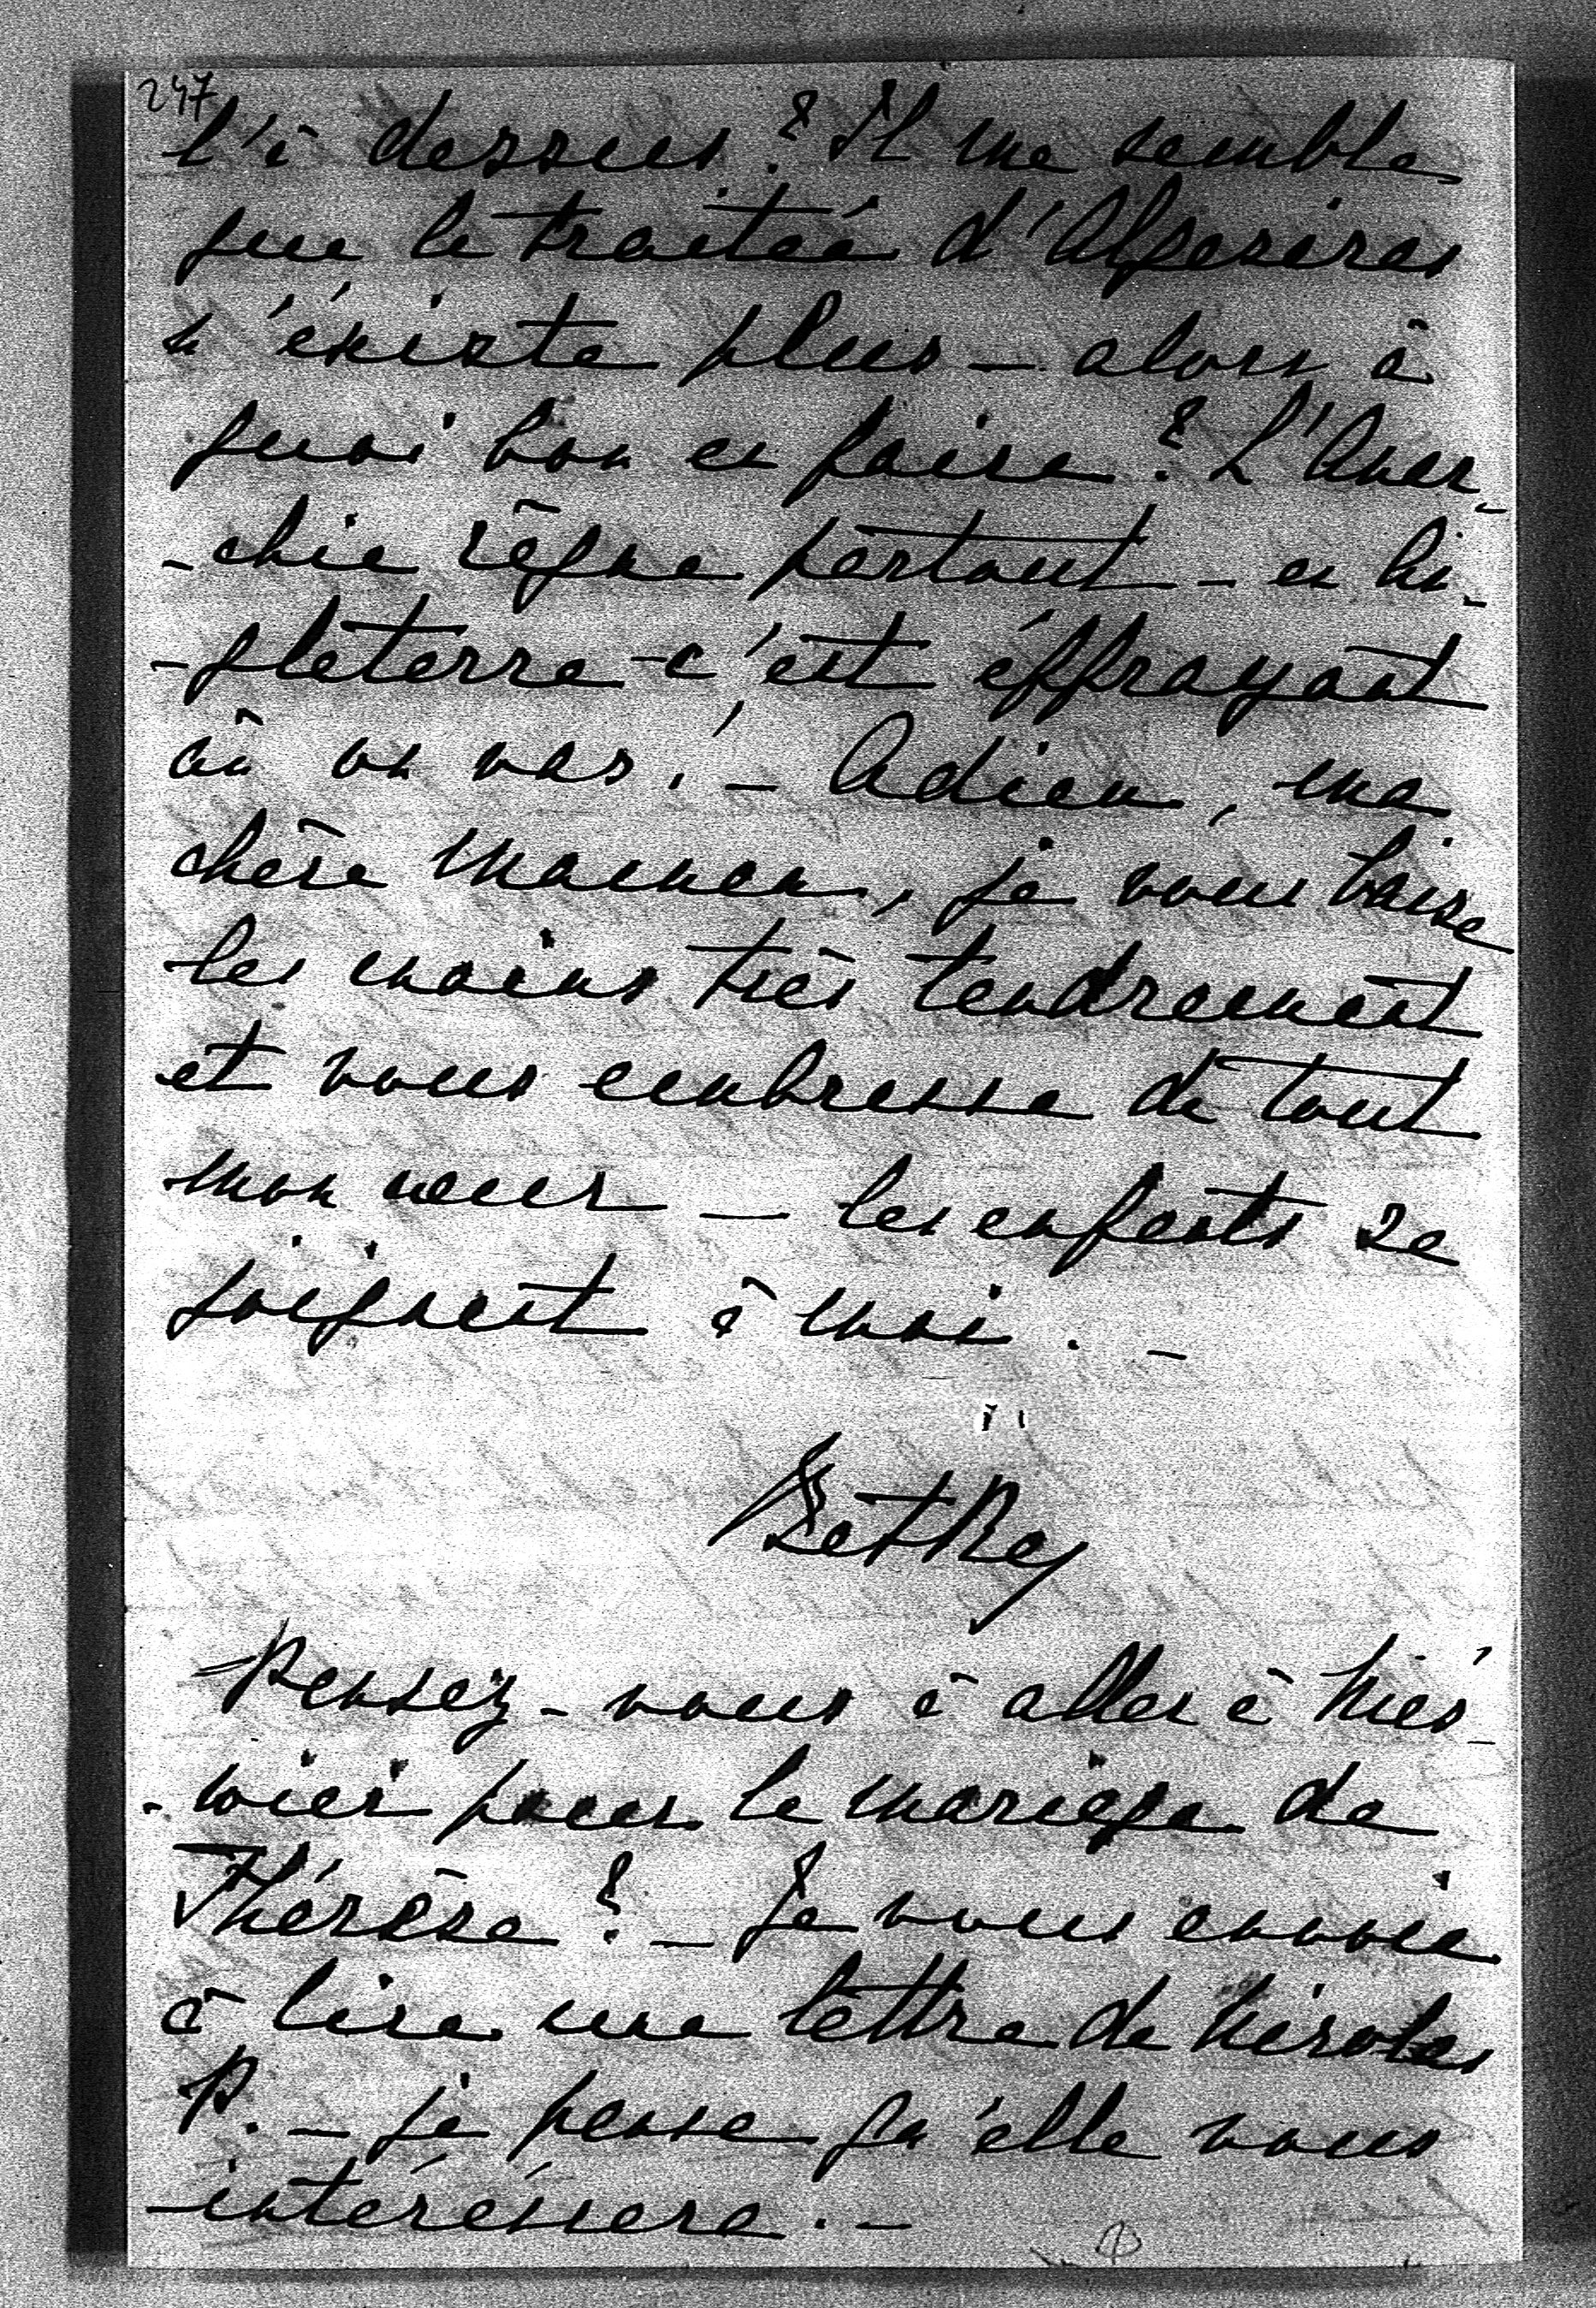 247
là dessus? Il me semble
que le traiteé d'Algesiras
n'éxiste plus — alors à
quoi bon en faire? L'Anar-
-chie règne partout — en An-
-gleterre — c'est éffrayant
où on va! — Adieu, ma
chère Maman, je vous baise
les mains très tendrement
et vous embrasse de tout
mon cœur — les enfants se
joignent à moi. —
Betsy
Pensez-vous à aller à Nies-
-wiez pour le mariage de
Thérèse? — Je vous envoie
à lire une lettre de Nicolas
P. — je pense qu'elle vous
intéréssera. —